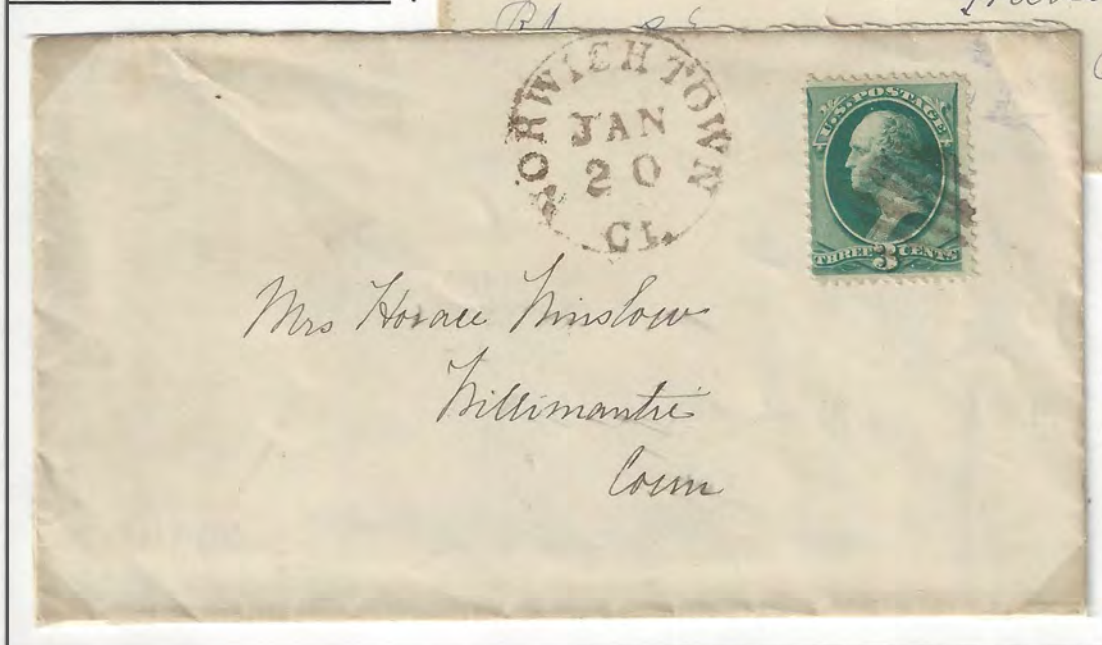 NORWICH TOWN
JAN
20
CT.
U.S. POSTAGE
THREE 3 CENTS
Mrs Horace Winslow
Willimantic
Conn